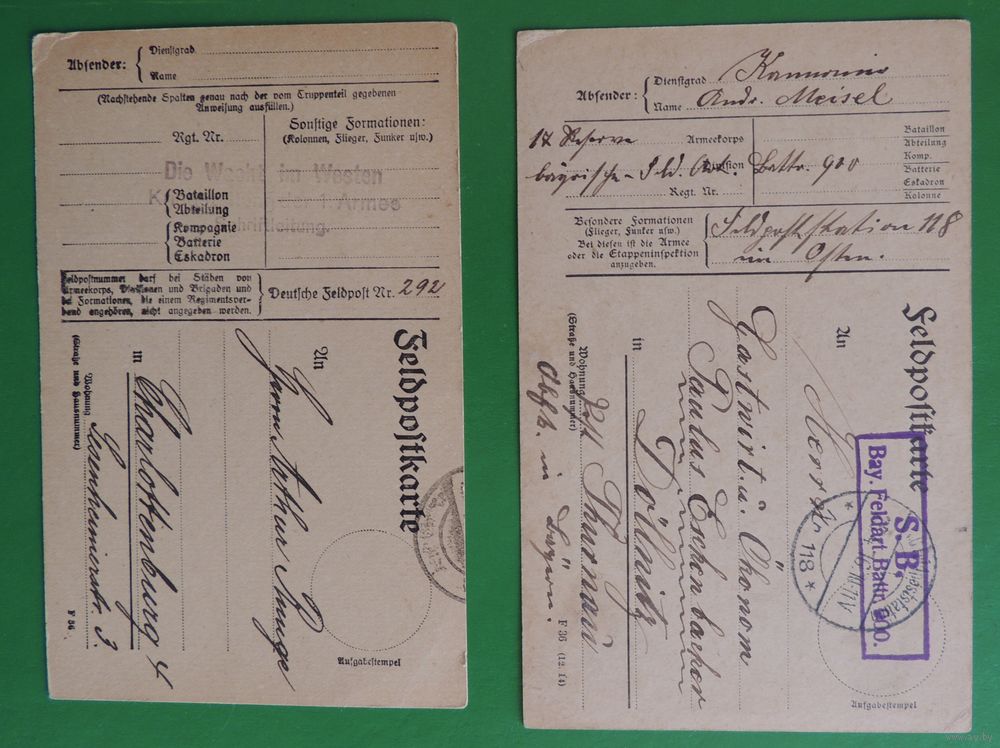 Absender:
Dienstgrad
Name
(Nachstehende Spalten genau nach der vom Truppenteil gegebenen
Anweisung ausfüllen.)
Rgt. Nr.
Bataillon
Abteilung
Kompagnie
Batterie
Eskadron
Sonstige Formationen:
(Kolonnen, Flieger, Funker usw.)
Die Wacht im Westen
1. Armee
Schriftleitung.
Feldpostnummer darf bei Stäben von
Armeekorps, Divisionen und Brigaden und
bei Formationen, die einem Regimentsver-
band angehören, nicht angegeben werden.
Deutsche Feldpost Nr. 292
Feldpostkarte
An
Herrn Arthur
in Charlottenburg 4
Wohnung
(Straße und Hausnummer)
3.
Aufgabestempel
F 36
Absender:
Dienstgrad
Name Andr. Meisel
17 Reserve Armeekorps
bayrische Division Battr. 900
Regt. Nr.
Bataillon
Abteilung
Komp.
Batterie
Eskadron
Kolonne
Besondere Formationen
(Flieger, Funker usw.)
Bei diesen ist die Armee
oder die Etappeninspektion
anzugeben.
Feldpoststation 118
im Osten.
Feldpostkarte
S. B.
Bay. Feldart. Battr. 900.
* Nr. 118 *
An Herrn
Gastwirt u. Ökonom
Paulus Eschenbacher
in Döllnitz
Wohnung
(Straße und Hausnummer)
Pst Thurnau
Obfk. in Bayern.
Aufgabestempel
F 36 (12. 14)
www.ay.by